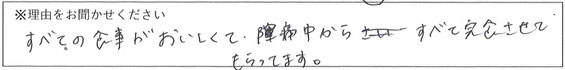 ※理由をお聞かせください
すべての食事がおいしくて、陣痛中から すべて完食させて
もらってます。